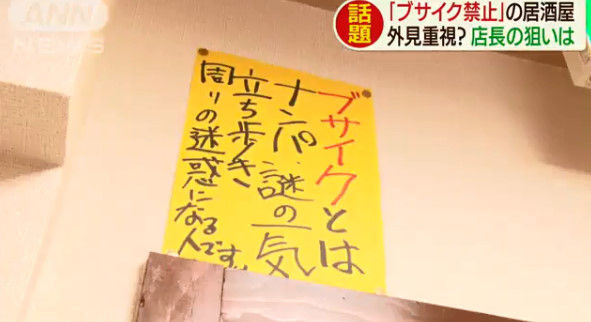 ANN
News
話題
「ブサイク禁止」の居酒屋
外見重視? 店長の狙いは
ブサイクとは
ナンパ、謎の一気
立ち歩き
周りの迷惑になる
人です。